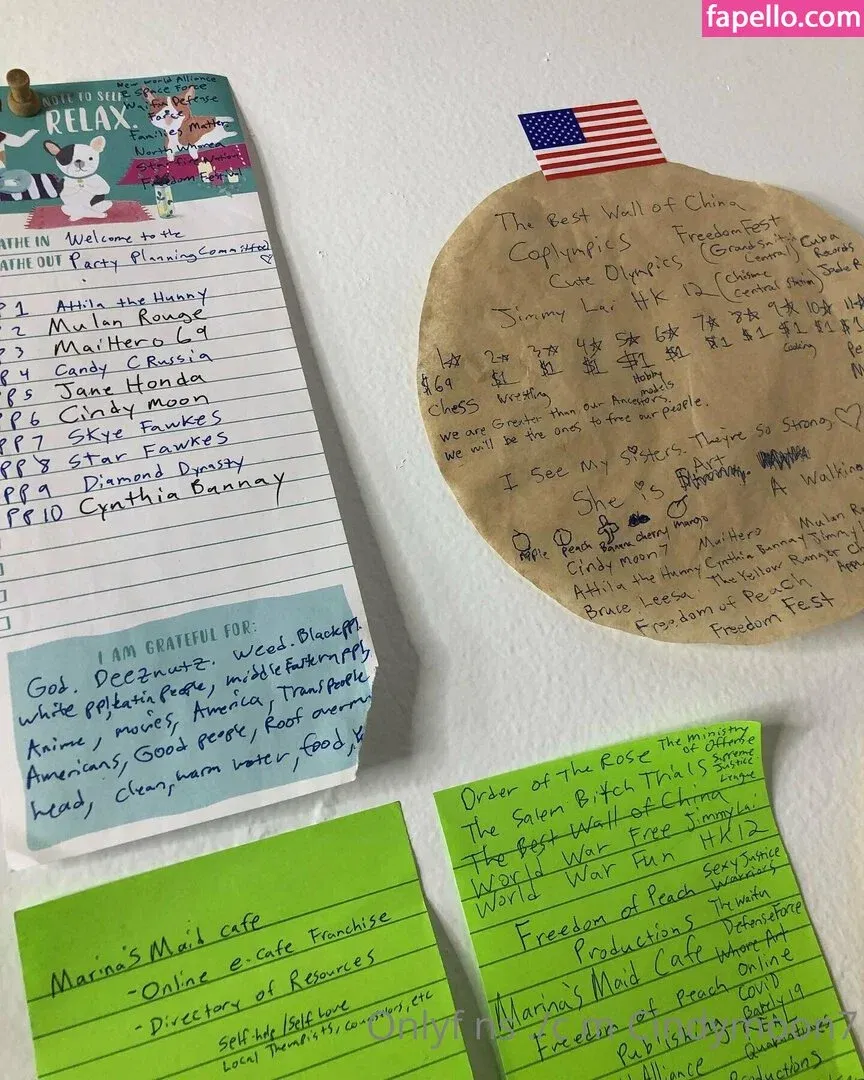 fapello.com
NOTE TO SELF:
RELAX.
New World Alliance
Space Force
Waifu Defense
Force
Families Matter
North Whorea
Star Fire Nation
Freedom Festival
ATHE IN Welcome to the
ATHE OUT Party Planning Committee
P 1 Attila the Hunny
P 2 Mulan Rouge
P 3 MaiHero 69
PP 4 Candy C Russia
PP 5 Jane Honda
PP 6 Cindy moon
PP 7 Skye Fawkes
PP 8 Star Fawkes
PP 9 Diamond Dynasty
PP 10 Cynthia Bannay
I AM GRATEFUL FOR:
God. Deeznutz. Weed. Black ppl.
white ppl, Latin People, middle Eastern ppl,
Anime, movies, America, Trans People
Americans, Good people, Roof over my
head, clean, warm water, food,
The Best Wall of China
Coplympics FreedomFest
Cute Olympics (Grandsnitch Central) Cuba Records
Jimmy Lai HK 12 (Chisme Central Station) Jade R
1☆ 2☆ 3☆ 4☆ 5☆ 6☆ 7☆ 8☆ 9☆ 10☆ 11☆
$69 $1 $1 $1 $1 $1 $1 $1 $1 $1
Chess Wrestling Hobby models Cooking
We are Greater than our Ancestors.
We will be the ones to free our people.
I see My Sisters. They're so Strong ♡
She is Art A Walking
Apple Peach Banana cherry mango
Cindy moon 7 MaiHero Mulan Ro
Attila the Hunny Cynthia Bannay Jimmy
Bruce Leesa The Yellow Ranger
Freedom of Peach
Freedom Fest
Order of The Rose The ministry of Offense
The Salem Bitch Trials Supreme Justice League
The Best Wall of China
World War Free Jimmy Lai
World War Fun HK12
Freedom of Peach Sexy Justice Warriors
Productions The Waifu
Marina's Maid Cafe Defense Force
Freedom of Peach Whore Art Online
Publishing Covid
Alliance Barely 19
Productions
Marina's Maid cafe
- Online e-cafe Franchise
- Directory of Resources
Self-help/Self Love
Local Therapists, counselors, etc